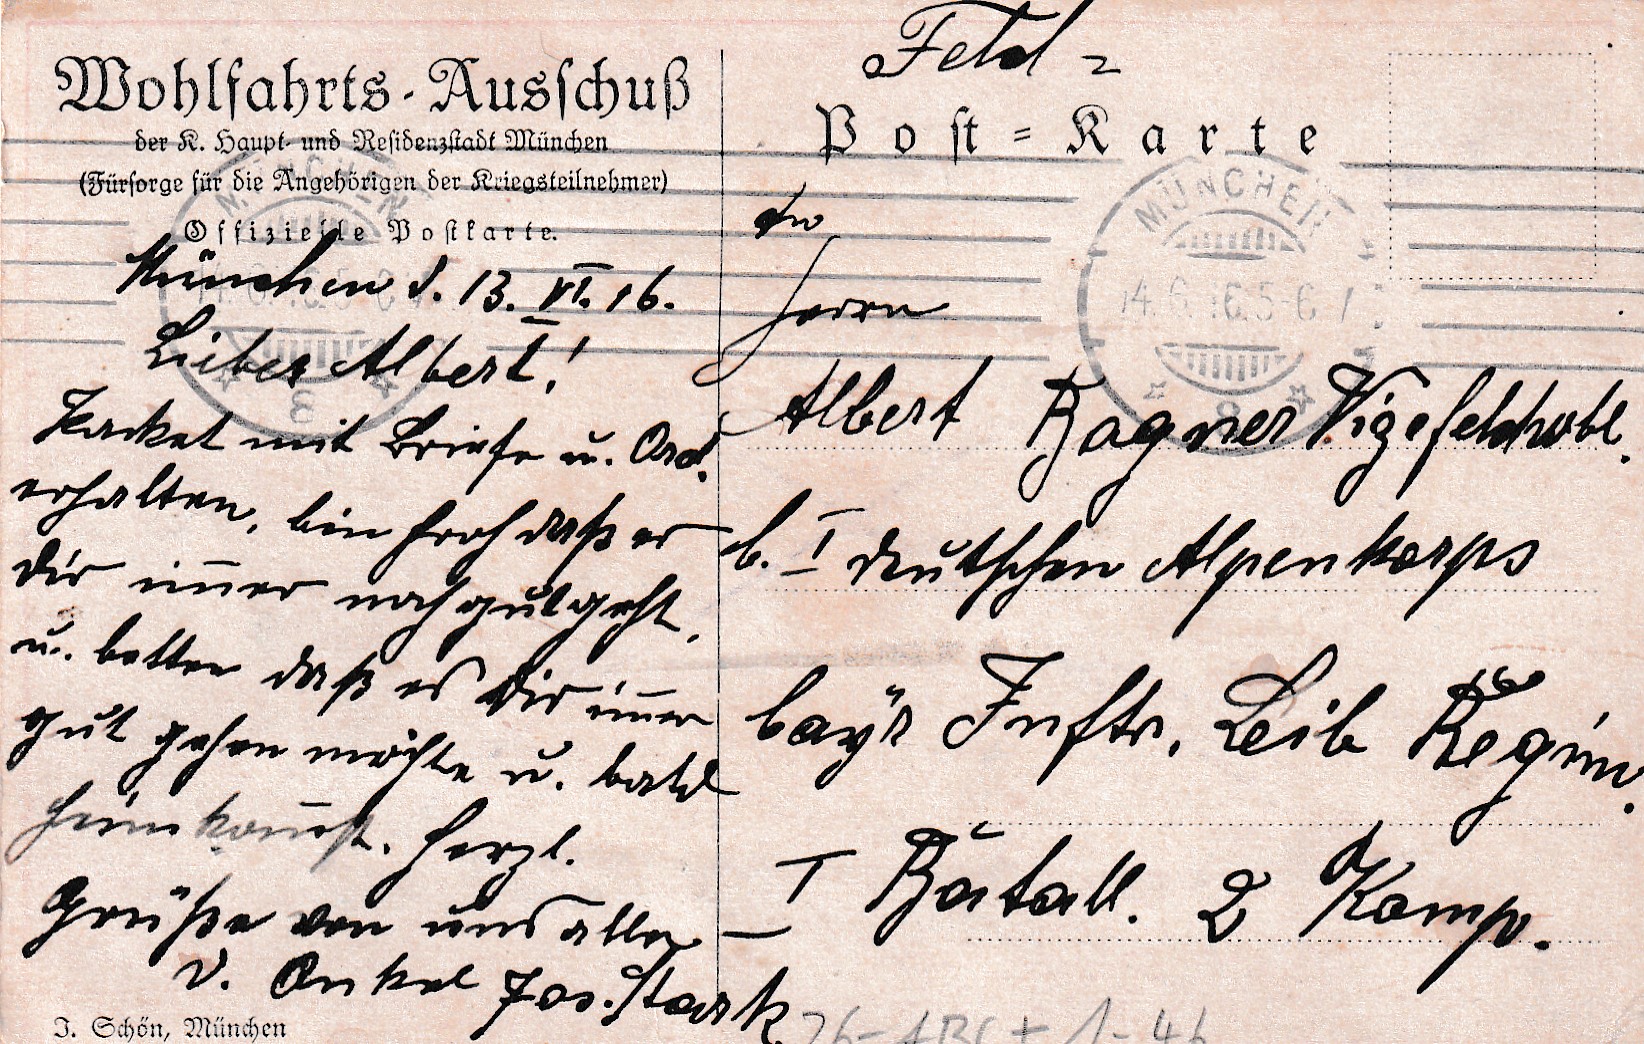 Wohlfahrts-Ausschuß
der K. Haupt- und Residenzstadt München
(Fürsorge für die Angehörigen der Kriegsteilnehmer)
Offizielle Postkarte.
München d. 13. VI. 16.
Lieber Albert!
Packet mit Briefe u. Ord.
erhalten, bin froh daß es
Dir im̅er noch gut geht,
u. betten daß es Dir im̅er
gut gehen möchte u. bald
heimkom̅st. Herzl.
Grüße von uns alle
v. Onkel Jos. Stark
J. Schön, München
Feld=
Post=Karte
An
Herrn
Albert Bagner Vizefeldwbl.
b. I deutschen Alpenkorps
bayr Inftr. Leib Regim.
I Batall. 2 Komp.
MÜNCHEN
14.6.16.5-6
8
MÜNCHEN
8